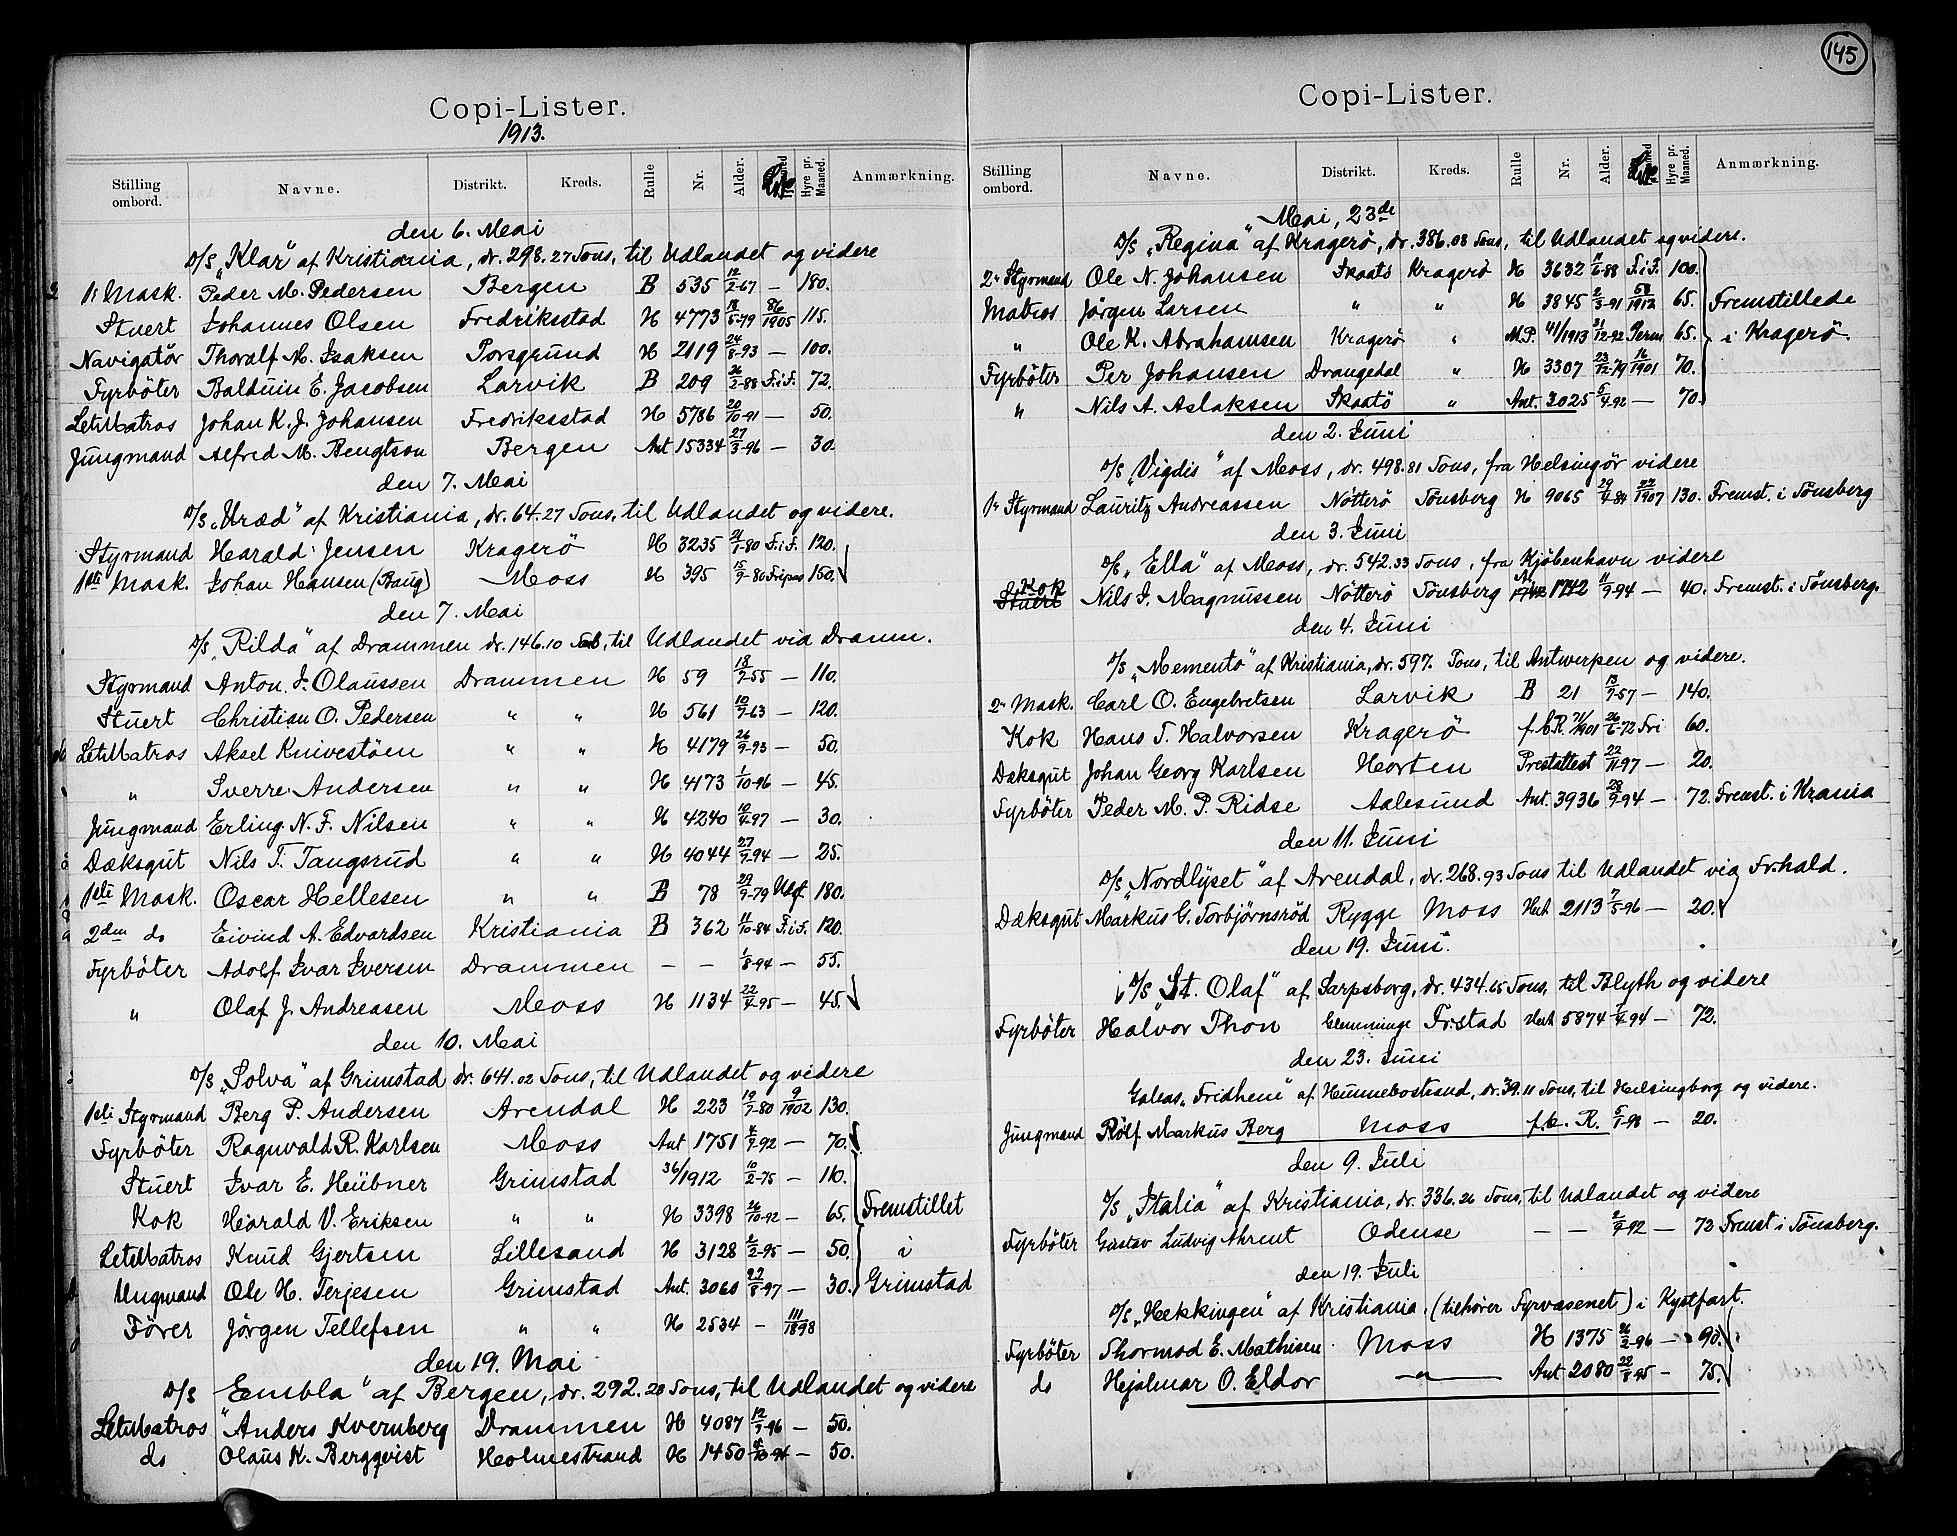 Copi-Lister.
1913.
Stilling ombord. Navne. Distrikt. Kreds. Rulle Nr. Alder. Hyre pr. Maaned. Anmærkning.
den 6. Mai
D/S „Klar" af Kristiania, dr. 298.27 Tons, til Udlandet og videre
1ste Mask. Peder M. Pedersen Bergen B 535 12/2-67 — 180.
Stuert Johannes Olsen Fredriksstad H 4773 18/5-79 86/1905 115.
Navigatør Thoralf M. Isaksen Porsgrund H 2119 24/8-93 — 100.
Fyrbøter Balduin E. Jacobsen Larvik B 209 26/2-88 F.i F. 72.
LetMatros Johan K. J. Johansen Fredriksstad H 5786 20/10-91 — 50.
Jungmand Alfred M. Bengtson Bergen Ant 15334 27/3-96 — 30.
den 7. Mai
D/S „Uræd" af Kristiania, dr. 64.27 Tons, til Udlandet og videre.
Styrmand Harald Jensen Kragerö H 3235 21/1-80 F.i F. 120.
1ste Mask. Johan Hansen (Haug) Moss H 395 15/9-80 Fripas 150.
den 7. Mai
D/S „Rilda" af Drammen dr. 146.10 Tons, til Udlandet via Dramm.
Styrmand Anton J. Olaussen Drammen H 59 18/9-55 — 110.
Stuert Christian O. Pedersen " " H 561 10/9-63 — 120.
LetMatros Aksel Knivestöen " " H 4179 26/9-93 — 50.
" Sverre Andersen " " H 4173 1/10-96 — 45.
Jungmand Erling N. F. Nilsen " " H 4240 10/4-97 — 30.
Dæksgut Nils T. Tangsrud " " H 4044 27/9-94 — 25.
1ste Mask. Oscar Hellesen " " B 78 29/9-79 Udsf 180.
2den do Eivind A. Edvardsen Kristiania B 362 11/10-84 F.i F. 120.
Fyrböter Adolf Ivar Iversen Drammen — — 1/8-94 — 55.
" Olaf J. Andreasen Moss H 1134 22/4-95 — 45.
den 10. Mai
D/S „Solva" af Grimstad dr. 641.02 Tons, til Udlandet og videre
1ste Styrmand Berg P. Andersen Arendal H 223 19/7-80 9/1902 130.
Fyrböter Ragnvald R. Karlsen Moss Ant 1751 4/9-92 — 70.
Stuert Ivar E. Heübner Grimstad 36/1912 10/2-75 — 110.
Kok Harald V. Eriksen " " H 3398 26/10-92 — 65. Fremstillet
LetMatros Knud Gjertsen Lillesand H 3128 2/2-95 — 50. i
Ungmand Ole H. Terjesen Grimstad Ant. 3060 27/8-97 — 30. Grimstad
Förer Jørgen Tellefsen " " H 2534 — 111/1898
den 19. Mai
D/S „Embla" af Bergen, dr. 292.28 Tons, til Udlandet og videre
LetMatros Anders Kvernberg Drammen H 4087 12/9-96 — 50.
do Olaus K. Bergqvist Holmestrand H 1450 — 50.
145
Copi-Lister.
Stilling ombord. Navne. Distrikt. Kreds. Rulle Nr. Alder. Hyre pr. Maaned. Anmærkning.
Mai, 23de
D/S „Regina" af Kragerö, dr. 386.08 Tons, til Udlandet og videre.
2n Styrmand Ole N. Johansen Skaatö Kragerö H 3632 11/6-88 F.i F. 100.
Matros Jörgen Larsen " " H 3845 2/3-91 58/1912 65. Fremstillede
" Ole K. Abrahamsen Kragerö " M.P. 41/1913 31/12-92 Perm 65. i Kragerö.
Fyrböter Per Johansen Drangedal " H 3307 23/12-79 16/1901 70.
" Nils A. Aslaksen Skaatö " Ant. 3025 5/4-92 — 70.
den 2. Juni
D/S „Vigdis" af Moss, dr. 498.81 Tons, fra Helsingör videre
1n Styrmand Lauritz Andreassen Nötterö Tönsberg H 9065 29/4-84 22/1907 130. Fremst. i Tönsberg
den 3. Juni
D/S „Ella" af Moss, dr. 542.33 Tons, fra Kjöbenhavn videre
Kok
Stuert Nils J. Magnussen Nötterö Tönsberg 1742 11/9-94 — 40. Fremst. i Tönsberg.
den 4. Juni
D/S „Memento" af Kristiania, dr. 597. Tons, til Antwerpen og videre.
2n Mask. Carl O. Engebretsen Larvik B 21 13/9-57 — 140.
Kok Hans T. Halvorsen Kragerö f.b.R. 71/1901 26/6-72 Fri 60.
Dæksgut Johan Georg Karlsen Horten Prestattest 22/11-97 — 20.
Fyrböter Peder M. P. Ridse Aalesund Ant. 3936 28/9-94 — 72. Fremst. i Krania
den 11. Juni
D/S „Nordlyset" af Arendal, dr. 268.93 Tons til Udlandet via Fr.hald.
Dæksgut Markus G. Torbjörnsröd Rygge Moss Hert 2113 7/5-96 — 20.
den 19. Juni
D/S „St. Olaf" af Sarpsborg, dr. 434.65 Tons, til Blyth og videre
Fyrböter Halvor Thon Glemminge Fr.stad Hert 5874 7/4-94 — 72.
den 23. Juni
Galeas „Fridhem" af Hunnebostrand, dr. 39.11 Tons, til Helsingborg og videre.
Jungmand Rolf Markus Berg Moss f.b. R. 5/1-98 — 20.
den 9. Juli
D/S „Italia" af Kristiania, dr. 336.26 Tons, til Udlandet og videre
Fyrböter Gustav Ludvig Ahrent Odense — — 2/9-92 — 72 Fremst i Tönsberg.
den 19. Juli
D/S „Hekkingen" af Kristiania, (tilhörer Fyrvæsenet) i Kystfart.
Fyrböter Thormod E. Mathisen Moss H 1375 26/2-96 — 90.
do Hjalmar O. Eldor — " — Ant 2080 22/8-95 — 75.